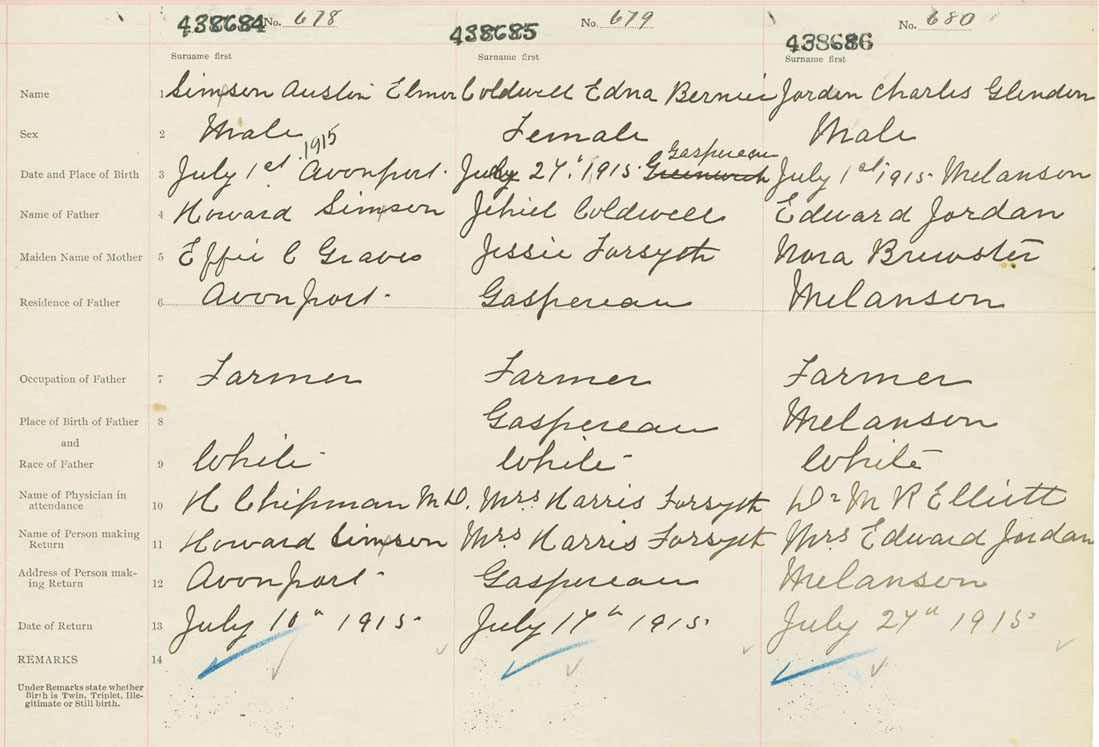 438684 No. 678 438685 No. 679 438686 No. 680
Surname first Surname first Surname first
Name 1 Simson Austin Elmer Coldwell Edna Bernice Jordan Charles Glendon
Sex 2 Male Female Male
1915 Gaspereau
Date and Place of Birth 3 July 1st Avonport. July 24. 1915. Greenwich July 1st 1915. Melanson
Name of Father 4 Howard Simson Jehiel Coldwell Edward Jordan
Maiden Name of Mother 5 Effie C Graves Jessie Forsyth Nora Brewster
Residence of Father 6 Avonport. Gaspereau Melanson
Occupation of Father 7 Farmer Farmer Farmer
Place of Birth of Father 8 Gaspereau Melanson
and
Race of Father 9 White White White
Name of Physician in
attendance 10 H Chipman M.D. Mrs Harris Forsyth Dr M R Elliott
Name of Person making
Return 11 Howard Simson Mrs Harris Forsyth Mrs Edward Jordan
Address of Person mak-
ing Return 12 Avonport Gaspereau Melanson
Date of Return 13 July 10" 1915. July 1915. July 24" 1915.
REMARKS 14
Under Remarks state whether
Birth is Twin, Triplet, Ille-
gitimate or Still-birth.